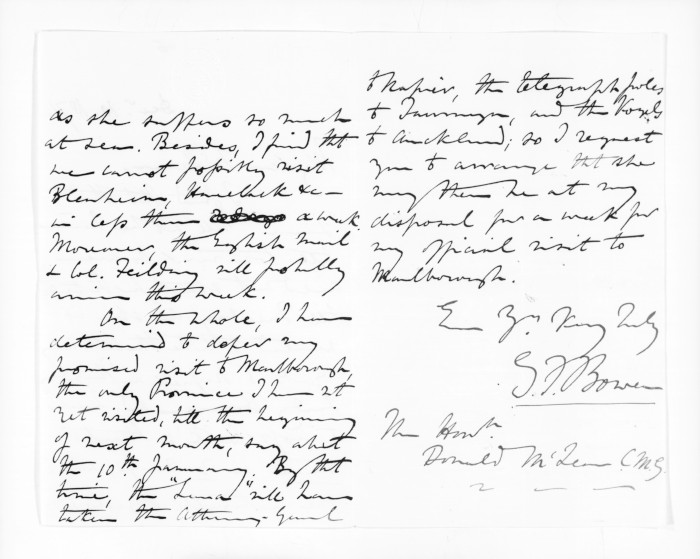 as she suffers so much
at sea. Besides, I find tht
we cannot possibly visit
Blenheim, Havelock &c –
in less than a week.
Moreover, the English mail
& Col. Feilding will probably
arrive this week.
On the whole, I have
determined to defer my
promised visit to Marlborough,
the only Province I have not
yet visited, till the beginning
of next month, say abt
the 10th January. By tht
time, the "Luna" will have
taken the Attorney-Genl
to Napier, the telegraph poles
to Tauranga, and the
to Auckland; so I request
you to arrange tht she
may then be at my
disposal for a week for
my official visit to
Marlborough.
Ever Yrs Very Truly
G.F. Bowen
The Honb.
Donald McLean C.M.G.